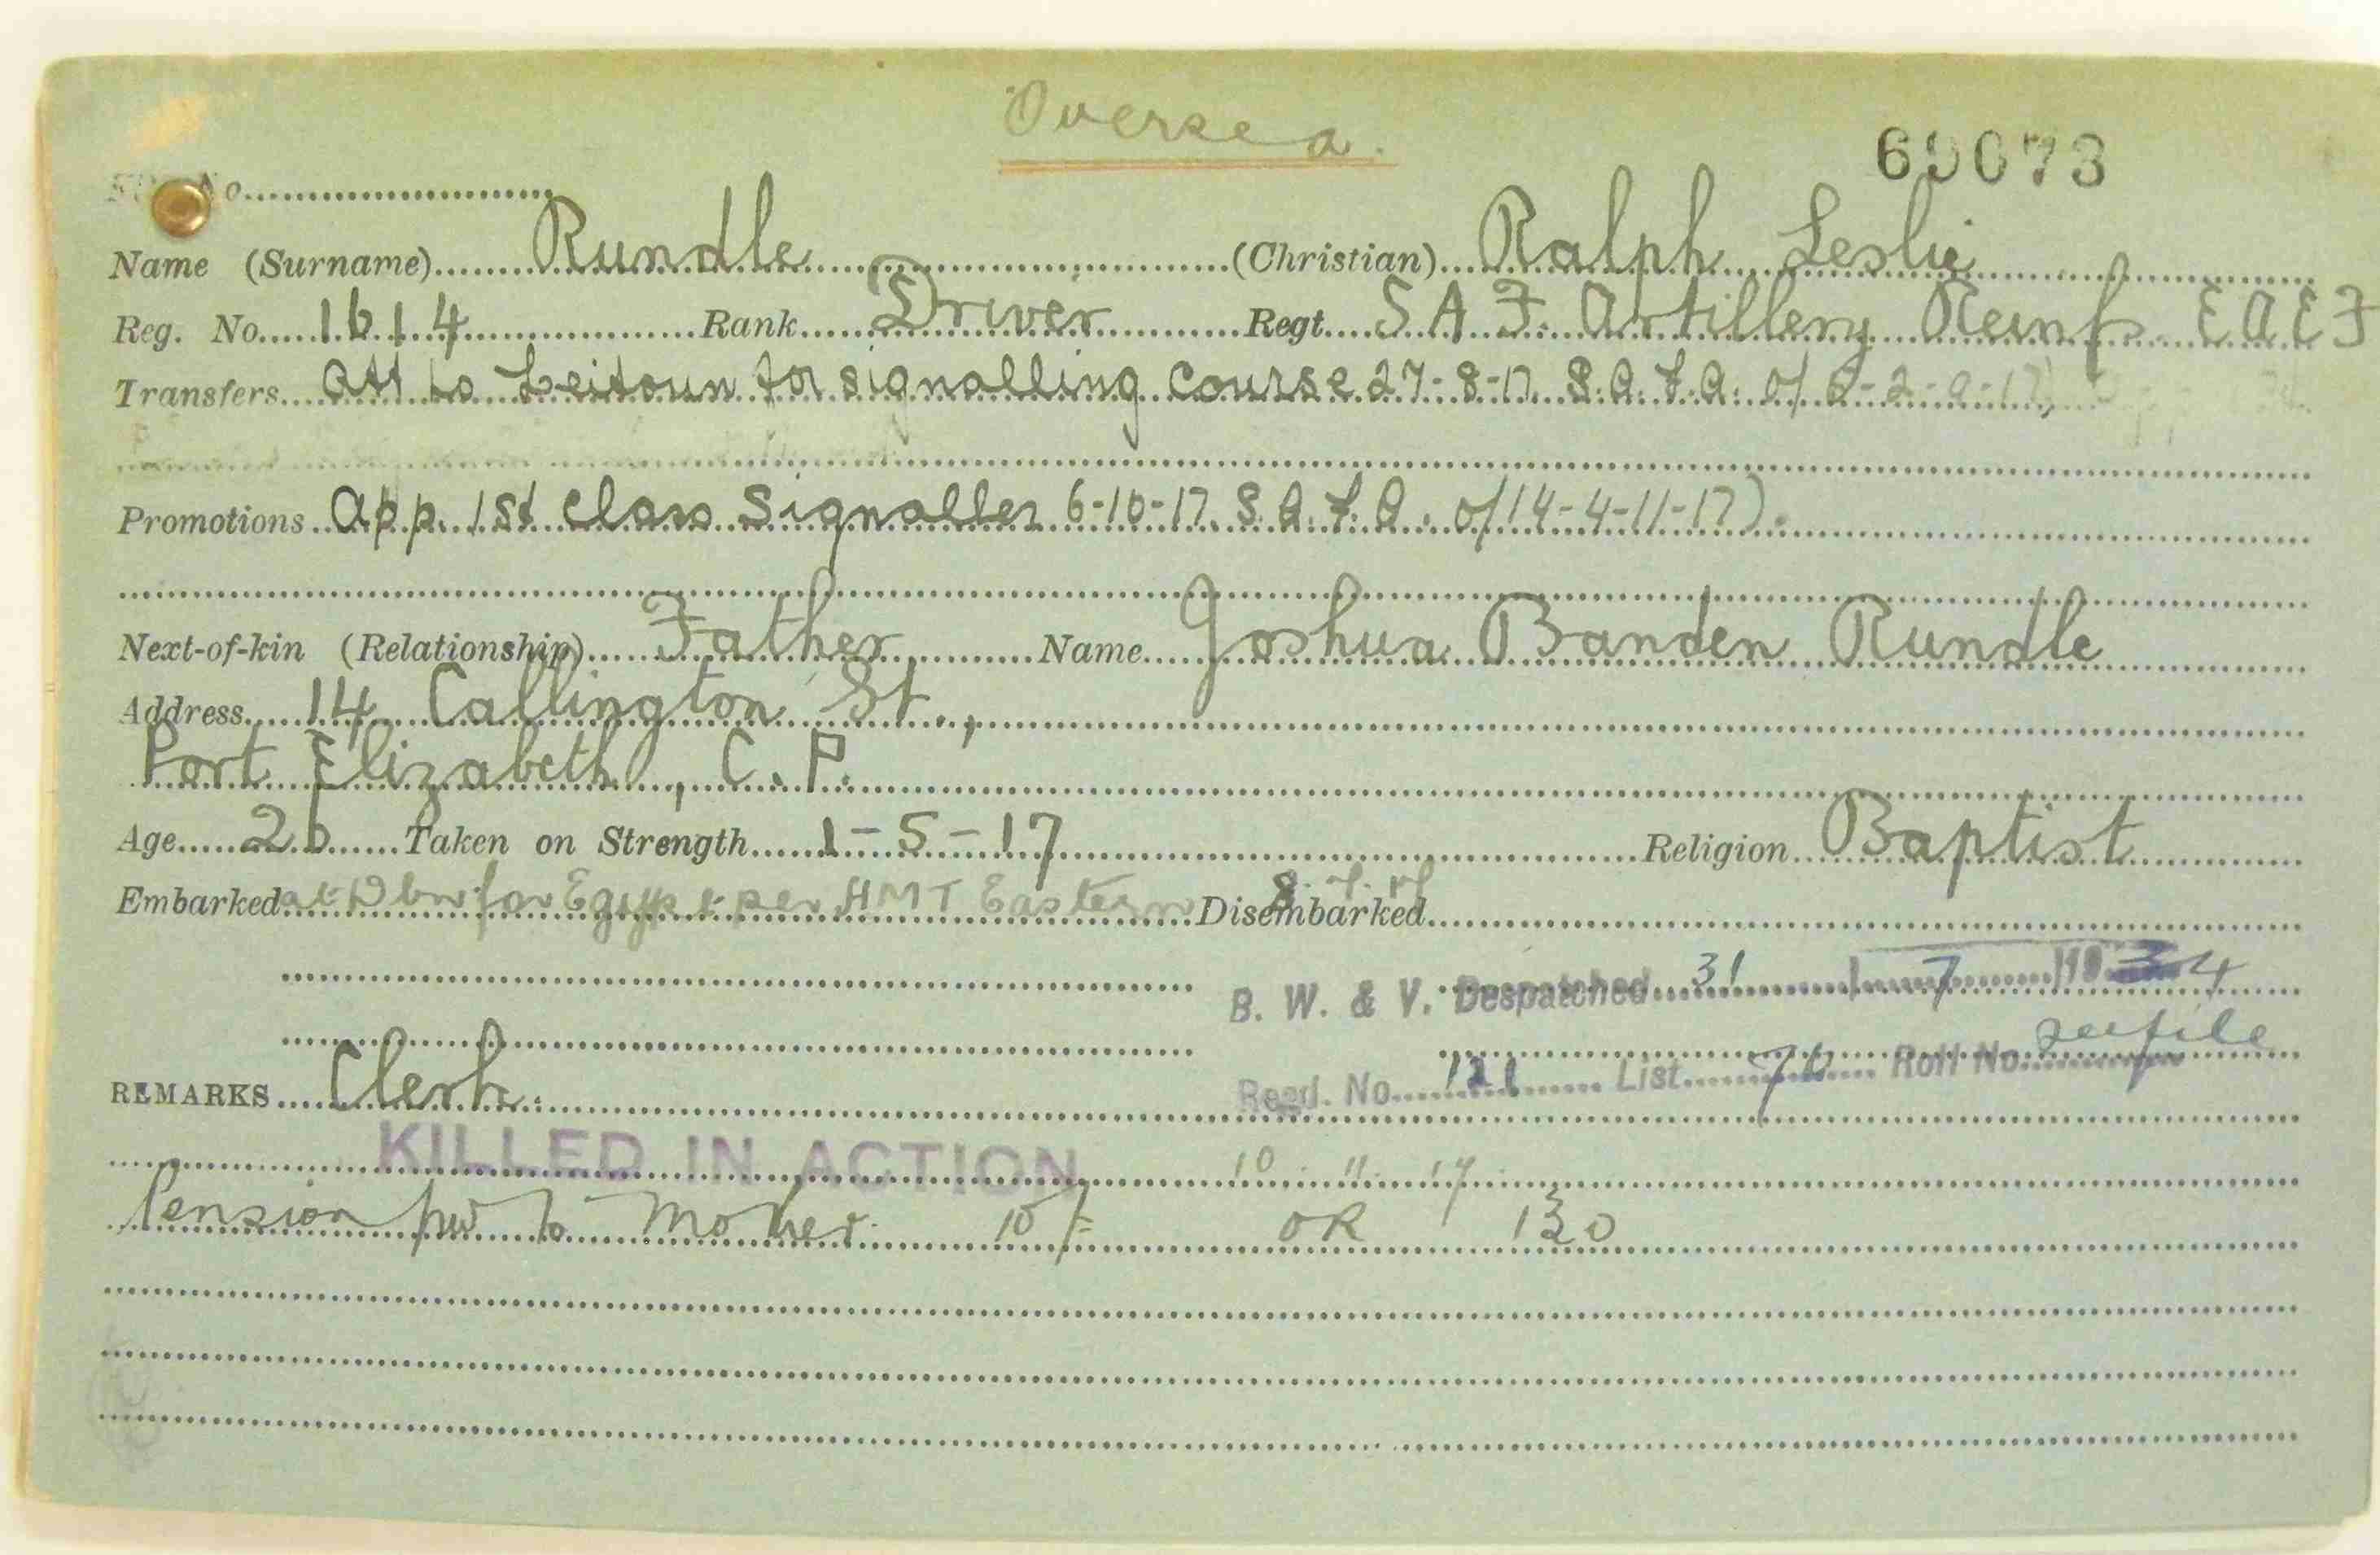 Oversea.
69073
No
Name (Surname) Rundle (Christian) Ralph Leslie
Reg. No. 1614 Rank Driver Regt. S A F. Artillery Reinfs E A E F
Transfers Att to Zeitoun for signalling course 27-8-17. S.A.F.A. o/ 6-2-9-17)
Promotions App. 1st Class Signaller 6-10-17. S.A.F.A. o/14-4-11-17).
Next-of-kin (Relationship) Father Name Joshua Banden Rundle
Address 14 Callington St.,
Port Elizabeth, C.P.
Age 20 Taken on Strength 1-5-17 Religion Baptist
Embarked at Dbn for Egypt per HMT Eastern Disembarked
B. W. & V. Despatched 31 / 7 / 1924
Regd. No. 121 List 70 Roll No. see file
REMARKS Clerk.
KILLED IN ACTION 10.11.17.
Pension pw to Mother. 10/= OR 130